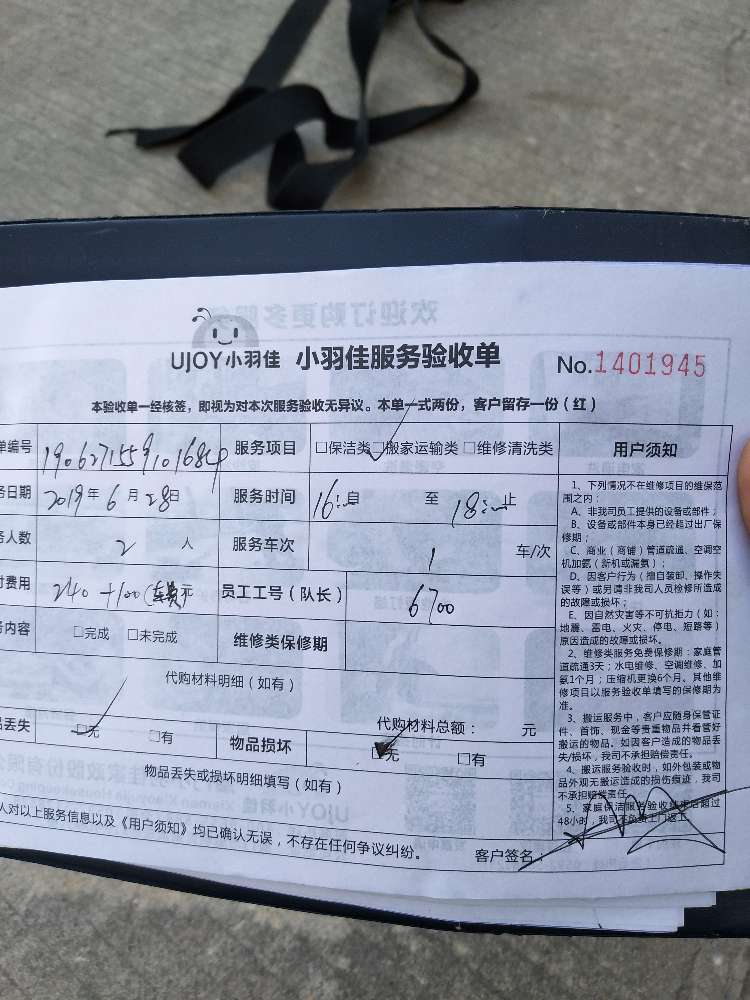 UJOY小羽佳 小羽佳服务验收单 No.1401945
本验收单一经核签，即视为对本次服务验收无异议。本单一式两份，客户留存一份（红）
单编号 服务项目 □保洁类□搬家运输类□维修清洗类
务日期 2019年6月28日 服务时间 16: 自 至 18: 止
务人数 2 人 服务车次 1 车/次
付费用 240+100(车费元 员工工号（队长） 6700
务内容 □完成 □未完成 维修类保修期
代购材料明细（如有）
代购材料总额： 元
品丢失 □无 □有 物品损坏 □无 □有
物品丢失或损坏明细填写（如有）
人对以上服务信息以及《用户须知》均已确认无误，不存在任何争议纠纷。 客户签名：
用户须知
1、下列情况不在维修项目的维保范
围之内：
A、非我司员工提供的设备或部件；
B、设备或部件本身已经超过出厂保
修期；
C、商业（商铺）管道疏通、空调空
机加氨（新机或漏氨）；
D、因客户行为（擅自装卸、操作失
误等）或另请非我司人员检修所造成
的故障或损坏；
E、因自然灾害等不可抗拒力（如：
地震、雷电、火灾、停电、短路等）
原因造成的故障或损坏。
2、维修类服务免费保修期：家庭管
道疏通3天；水电维修、空调维修、加
氨1个月；压缩机更换6个月。其他维
修项目以服务验收单填写的保修期为
准。
3、搬运服务中，客户应随身保管证
件、首饰、现金等贵重物品并看管好
搬运的物品。如因客户造成的物品丢
失/损坏，我司不承担赔偿责任。
4、搬运服务验收时，如外包装或物
品外观无搬运造成的损伤痕迹，我司
不承担赔偿责任。
5、家庭保洁服务验收结束后超过
48小时，我司不负责上门返工。